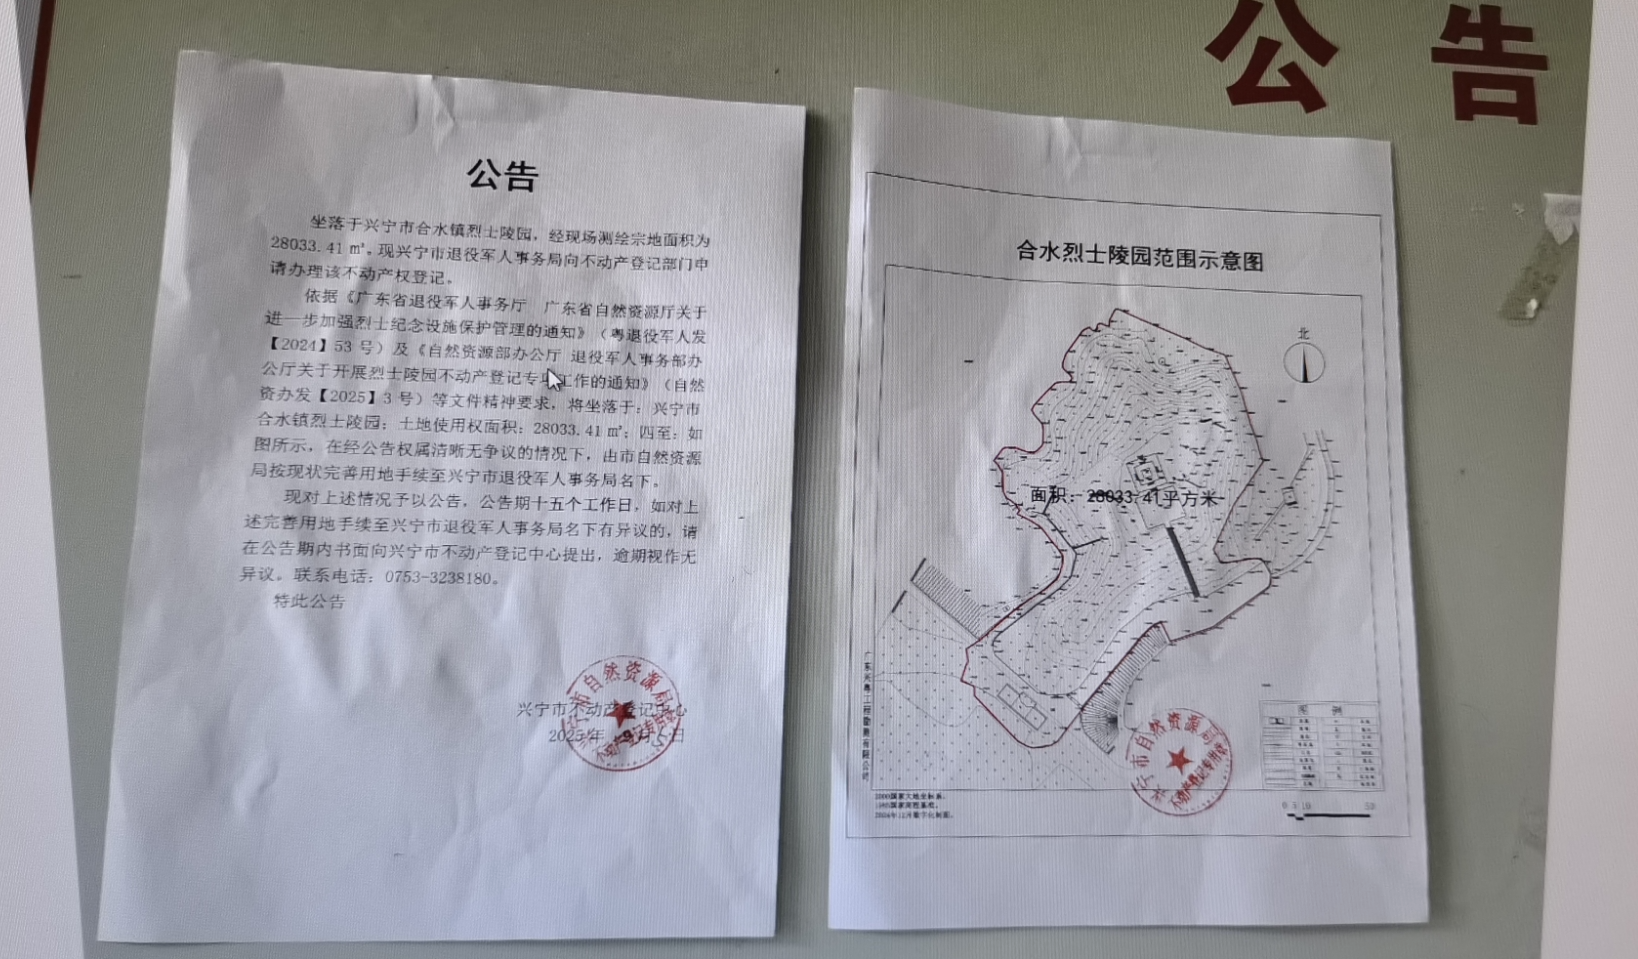 公告
公告
坐落于兴宁市合水镇烈士陵园，经现场测绘宗地面积为
28033.41 ㎡。现兴宁市退役军人事务局向不动产登记部门申
请办理该不动产权登记。
依据《广东省退役军人事务厅 广东省自然资源厅关于
进一步加强烈士纪念设施保护管理的通知》（粤退役军人发
【2024】53 号）及《自然资源部办公厅 退役军人事务部办
公厅关于开展烈士陵园不动产登记专项工作的通知》（自然
资办发【2025】3 号）等文件精神要求，将坐落于：兴宁市
合水镇烈士陵园；土地使用权面积：28033.41 ㎡；四至：如
图所示，在经公告权属清晰无争议的情况下，由市自然资源
局按现状完善用地手续至兴宁市退役军人事务局名下。
现对上述情况予以公告，公告期十五个工作日，如对上
述完善用地手续至兴宁市退役军人事务局名下有异议的，请
在公告期内书面向兴宁市不动产登记中心提出，逾期视作无
异议。联系电话：0753-3238180。
特此公告
兴宁市不动产登记中心
2025年 月 日
兴宁市自然资源局
不动产登记专用章
合水烈士陵园范围示意图
北
面积：28033.41平方米
图 例
兴宁市自然资源局
不动产登记专用章
2000国家大地坐标系。
1985国家高程基准。
2024年12月数字化制图。
0 5 10 50